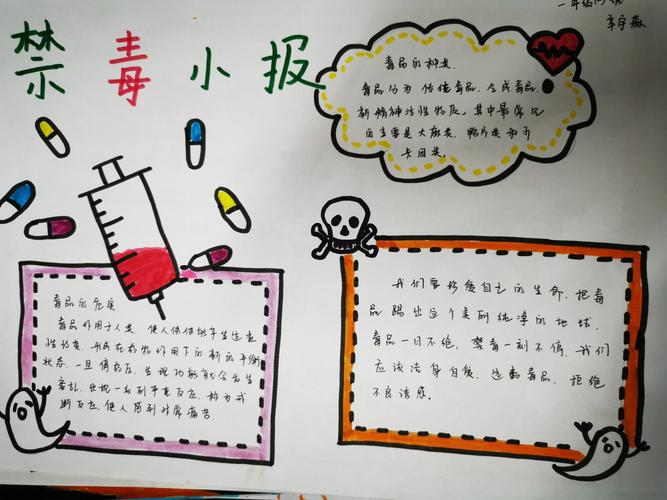 禁毒小报
毒品的种类
毒品分为 传统毒品、合成毒品、
新精神活性物质。其中最常见
的主要是大麻类、鸦片类和可
卡因类。
毒品的危害
毒品作用于人类，使人体体能产生适应
性改变，形成在药物作用下的新的平衡
状态，一旦停药后，生理功能就会发生
紊乱，出现一系列严重反应，称为戒
断反应，使人感到非常痛苦。
我们要珍爱自己的生命，把毒
品踢出这个美丽纯净的地球，
毒品一日不绝，禁毒一刻不停，我们
应该洁身自爱，远离毒品，拒绝
不良诱惑。